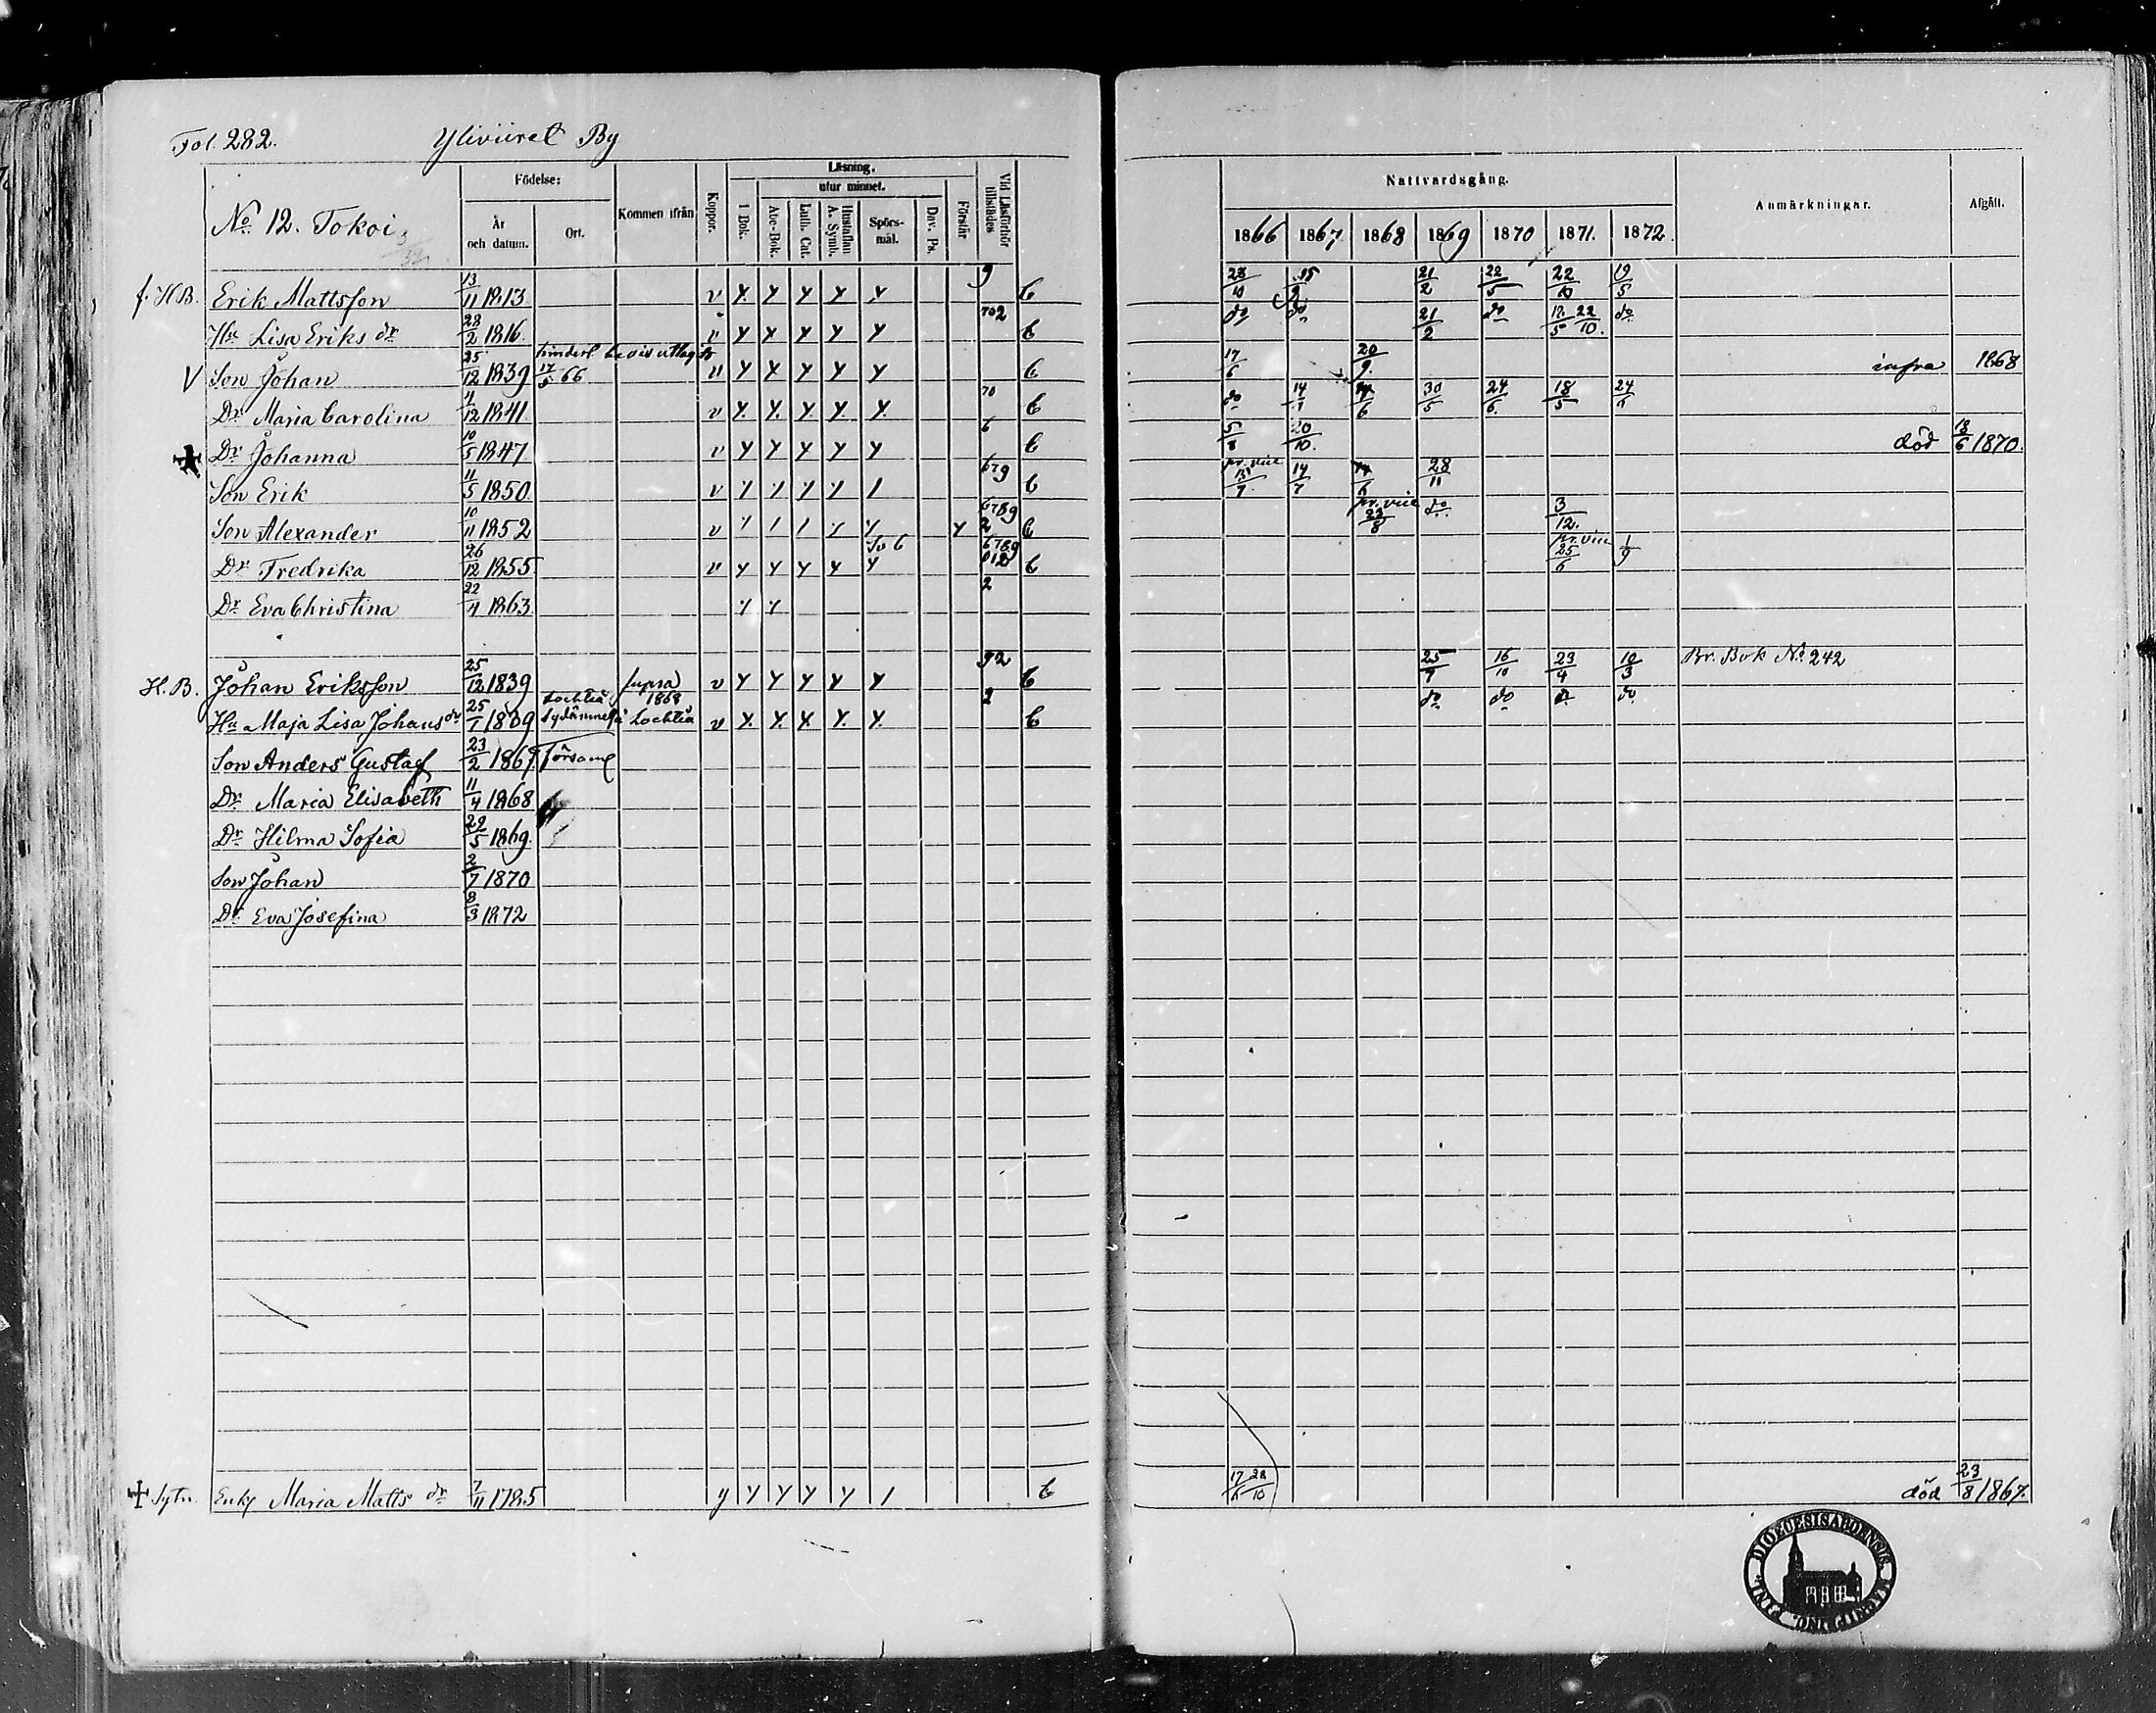 Fol. 282. Yliviiret By
No 12. Tokoi
Födelse:
År och datum.
Ort.
Kommen ifrån
Koppor.
Läsning.
utur minnet.
I Bok.
Abc-Bok.
Luth. Cat.
Hustaflan A. Symb.
Spörsmål.
Dav. Ps.
Förstår
Vid Läsförhör tillstädes
Nattvardsgång.
1866 1867 1868 1869 1870 1871. 1872
Anmärkningar.
Afgått.
f. H.B. Erik Mattsson 13/11 1813 v y y y y y 9 b 23/10 21/2 22/5 22/10 19/5
Hu Lisa Eriks dr 28/2 1816 v y y y y y 702 b do do 21/2 do 12/5 22/10. do
V Son Johan 25/12 1839 17/5 66 v y y y y y b 17/6 20/9. infra 1868
Dr Maria Carolina 4/12 1841 v y y y y y 70 b do 30/5 24/6 18/5
Dr Johanna 10/5 1847 v y y y y y 6 b 5/8 20/10. död 13/6 1870.
Son Erik 11/5 1850 v 679 b pr. vice 14/7 28/11
Son Alexander 10/11 1852 v y 6789 2 b pr. vice 23/8 do 3/12.
Dr Fredrika 26/12 1855 v y y y y y 6789 012 b pr. vice 25/6 1/9
Dr Eva Christina 22/4 1863 2
H. B. Johan Eriksson 25/12 1839 supra 1868 v y y y y y 92 b 25/7 16/10 23/4 10/3 Br. Bok No 242
Hu Maja Lisa Johans dr 25/1 1839 Lochteå Lochteå v y y y y y 2 b do do do do
Son Anders Gustaf 23/2 1867
Dr Maria Elisabeth 11/4 1868
Dr Hilma Sofia 29/5 1869.
Son Johan 2/7 1870
Dr Eva Josefina 8/3 1872
Sytn. Enky Maria Matts dr 7/11 1785 y y y y y 1 b 17/6 28/10 död 23/8 1867.
DIOECESIS ABOENSIS MAGNI PRINC. FINL.